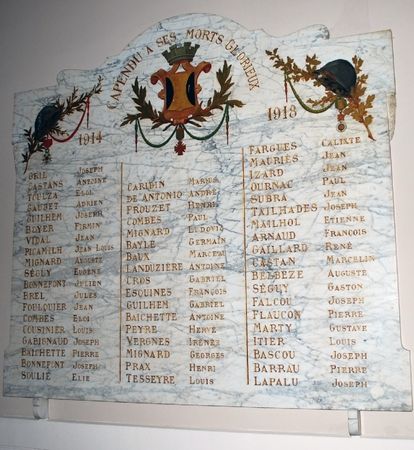 CAPENDU A SES MORTS GLORIEUX
1914
1918
GRIL JOSEPH
CASTANS ANTOINE
TOULZA ELOI
GAUBET ADRIEN
GUILHEM JOSEPH
BOYER FIRMIN
VIDAL JEAN
PICAMILH JEAN LOUIS
MIGNARD AUGUSTE
SÉGUY EUGÈNE
BONNEFONT JULIEN
BREL JULES
FOULQUIER JEAN
COMBES ELOI
COUSINIER LOUIS
GABIGNAUD JOSEPH
BAICHETTE PIERRE
BONNEFONT JOSEPH
SOULIÉ ELIE
MARIUS
DE ANTONIO ANDRÉ
FROUZET HENRI
COMBES PAUL
MIGNARD LUDOVIC
BAYLE GERMAIN
BAUX MARCEL
LANDUZIÈRE ANTOINE
CROS GABRIEL
ESQUINES FRANÇOIS
GUILHEM GABRIEL
BAICHETTE ANTOINE
PEYRE HERVÉ
VERGNES IRÉNÉE
MIGNARD GEORGES
PRAX HENRI
TESSEYRE LOUIS
FARGUES CALIXTE
MAURIÈS JEAN
IZARD JEAN
OURNAC PAUL
SUBRA JEAN
TAILHADES JOSEPH
MAILHOL ETIENNE
ARNAUD FRANÇOIS
GAILLARD RENÉ
CASTAN MARCELIN
BELBÈZE AUGUSTE
SÉGUY GASTON
FALCOU JOSEPH
FLAUCON PIERRE
MARTY GUSTAVE
ITIER LOUIS
BASCOU JOSEPH
BARRAU PIERRE
LAPALU JOSEPH